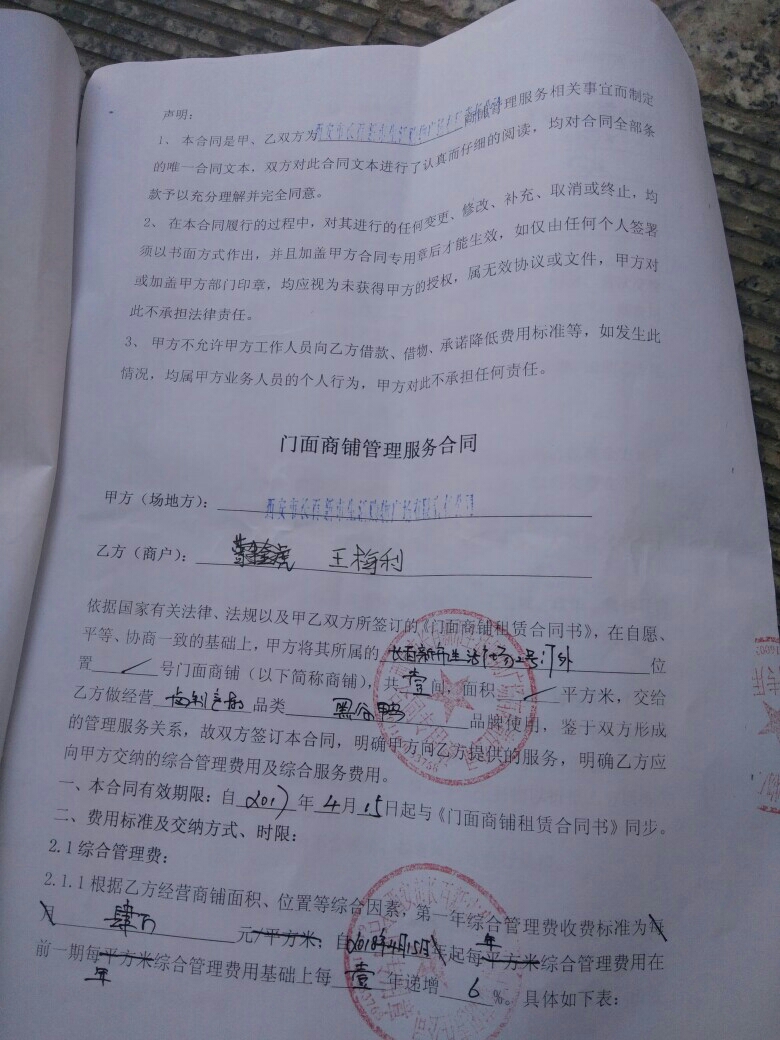 声明：
1、 本合同是甲、乙双方为 管理服务相关事宜而制定
的唯一合同文本，双方对此合同文本进行了认真而仔细的阅读，均对合同全部条
款予以充分理解并完全同意。
2、 在本合同履行的过程中，对其进行的任何变更、修改、补充、取消或终止，均
须以书面方式作出，并且加盖甲方合同专用章后才能生效，如仅由任何个人签署
或加盖甲方部门印章，均应视为未获得甲方的授权，属无效协议或文件，甲方对
此不承担法律责任。
3、 甲方不允许甲方工作人员向乙方借款、借物、承诺降低费用标准等，如发生此
情况，均属甲方业务人员的个人行为，甲方对此不承担任何责任。
门面商铺管理服务合同
甲方（场地方）：
乙方（商户）： 王梅利
依据国家有关法律、法规以及甲乙双方所签订的《门面商铺租赁合同书》，在自愿、
平等、协商一致的基础上，甲方将其所属的 位
置 / 号门面商铺（以下简称商铺），共 壹 间，面积 / 平方米，交给
乙方做经营 品类 品牌使用，鉴于双方形成
的管理服务关系，故双方签订本合同，明确甲方向乙方提供的服务，明确乙方应
向甲方交纳的综合管理费用及综合服务费用。
一、本合同有效期限：自 2017 年 4 月 15 日起与《门面商铺租赁合同书》同步。
二、费用标准及交纳方式、时限：
2.1 综合管理费：
2.1.1 根据乙方经营商铺面积、位置等综合因素，第一年综合管理费收费标准为每
月 肆万 元/平方米；自2018年4月15日年起每年平方米综合管理费用在
前一期每年平方米综合管理费用基础上每 壹 年递增 6 %。具体如下表：